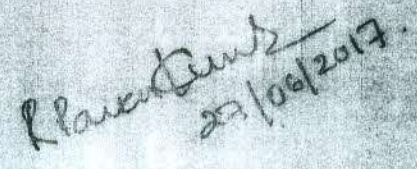 R Pavan Kumar
27/06/2017.